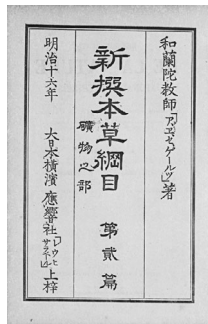 和蘭陀教師「アヱヰセゲールツ」著
新撰本草綱目
礦物之部
第貳篇
明治十六年
大日本横濱 應響社「レウヒサラネール」上梓